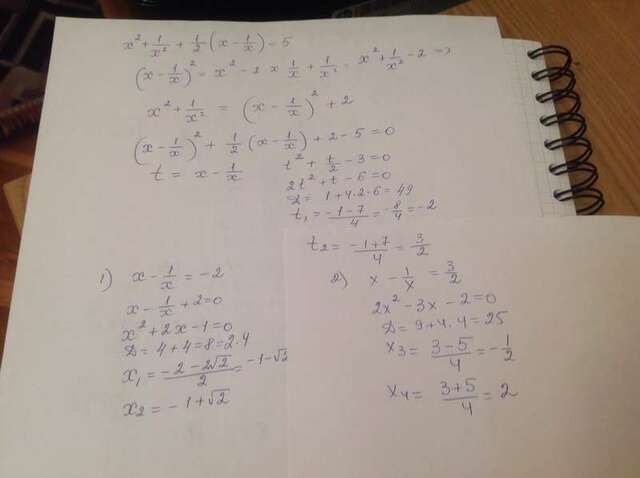 x² + 1/x² + 1/2 (x - 1/x) = 5
(x - 1/x)² = x² - 2 x 1/x + 1/x² = x² + 1/x² - 2 =>
x² + 1/x² = (x - 1/x)² + 2
(x - 1/x)² + 1/2 (x - 1/x) + 2 - 5 = 0
t = x - 1/x
t² + t/2 - 3 = 0
2t² + t - 6 = 0
D = 1 + 4·2·6 = 49
t₁ = (-1-7)/4 = -8/4 = -2
t₂ = (-1+7)/4 = 3/2
1) x - 1/x = -2
x - 1/x + 2 = 0
x² + 2x - 1 = 0
D = 4 + 4 = 8 = 2·4
x₁ = (-2-2√2)/2 = -1-√2
x₂ = -1+√2
2) x - 1/x = 3/2
2x² - 3x - 2 = 0
D = 9 + 4·4 = 25
x₃ = (3-5)/4 = -1/2
x₄ = (3+5)/4 = 2